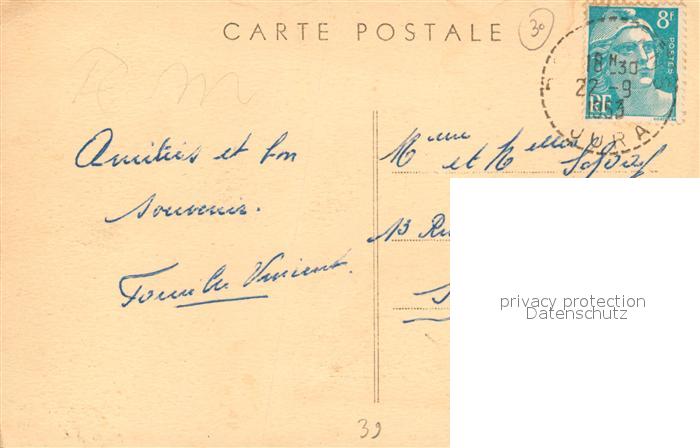 CARTE POSTALE
30
8F
POSTES
RF
18H30
22-9
1953
JURA
A M
Amitiés et bon
souvenir.
Famille Vincent.
Mme et Melles
13 Ru
privacy protection
Datenschutz
39